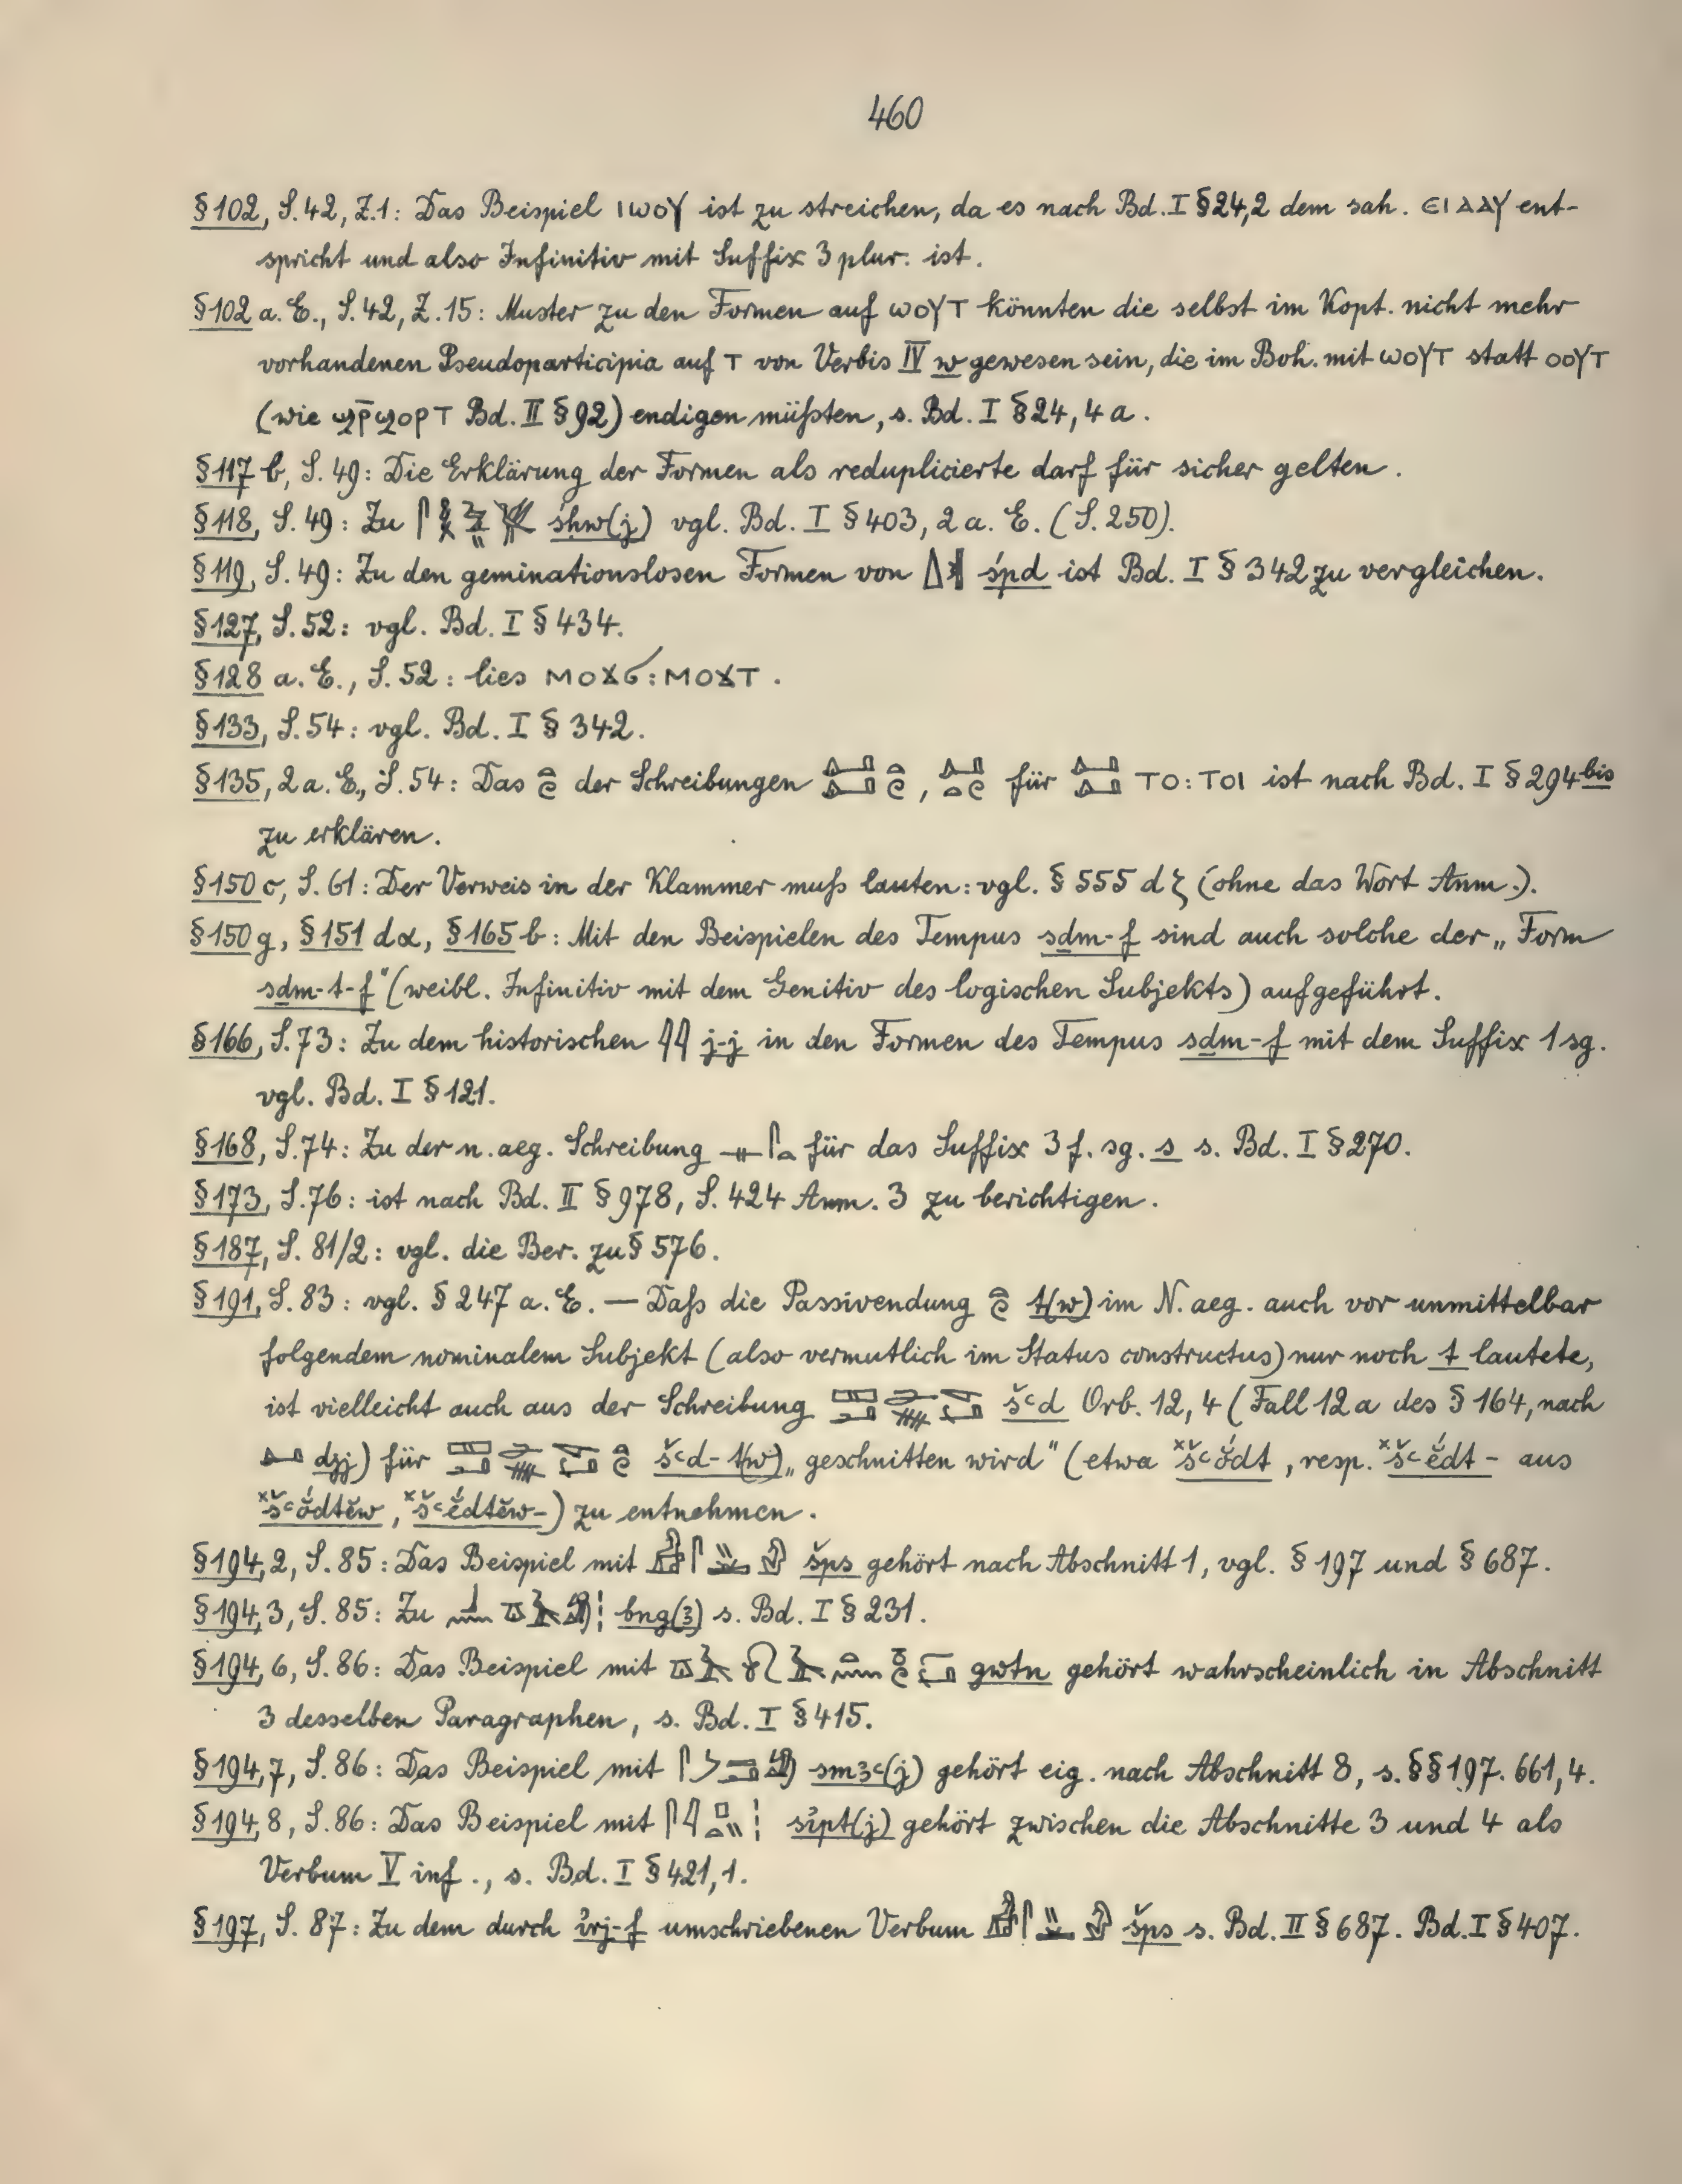 460
§102, S. 42, Z. 1: Das Beispiel ⲓⲱⲟⲩ ist zu streichen, da es nach Bd. I § 24,2 dem sah. ⲉⲓⲁⲁⲩ ent-
spricht und also Infinitiv mit Suffix 3 plur. ist.
§102 a. E., S. 42, Z. 15: Muster zu den Formen auf ⲱⲟⲩⲧ könnten die selbst im Kopt. nicht mehr
vorhandenen Pseudoparticipia auf ⲧ von Verbis IV w gewesen sein, die im Boh. mit ⲱⲟⲩⲧ statt ⲟⲟⲩⲧ
(wie ϣⲣ̄ϣⲟⲣⲧ Bd. II § 92) endigen müßten, s. Bd. I § 24, 4 a.
§117 b, S. 49: Die Erklärung der Formen als reduplicierte darf für sicher gelten.
§118, S. 49: Zu śhw(j) vgl. Bd. I § 403, 2 a. E. (S. 250).
§119, S. 49: Zu den geminationslosen Formen von śpd ist Bd. I § 342 zu vergleichen.
§127, S. 52: vgl. Bd. I § 434.
§128 a. E., S. 52: lies ⲙⲟϫϭ:ⲙⲟϫⲧ.
§133, S. 54: vgl. Bd. I § 342.
§135, 2 a. E., S. 54: Das der Schreibungen , für ⲧⲟ:ⲧⲟⲓ ist nach Bd. I § 294 bis
zu erklären.
§150 c, S. 61: Der Verweis in der Klammer muß lauten: vgl. § 555 d ζ (ohne das Wort Anm.).
§150 g, §151 dα, §165 b: Mit den Beispielen des Tempus sḏm-f sind auch solche der „Form
sḏm-t-f" (weibl. Infinitiv mit dem Genitiv des logischen Subjekts) aufgeführt.
§166, S. 73: Zu dem historischen 𓇋𓇋 j-j in den Formen des Tempus sḏm-f mit dem Suffix 1 sg.
vgl. Bd. I § 121.
§168, S. 74: Zu der n. aeg. Schreibung 𓊃𓋴𓏏 für das Suffix 3 f. sg. s s. Bd. I § 270.
§173, S. 76: ist nach Bd. II § 978, S. 424 Anm. 3 zu berichtigen.
§187, S. 81/2: vgl. die Ber. zu § 576.
§191, S. 83: vgl. § 247 a. E. — Daß die Passivendung 𓏏𓏲 t(w) im N. aeg. auch vor unmittelbar
folgendem nominalem Subjekt (also vermutlich im Status constructus) nur noch t lautete,
ist vielleicht auch aus der Schreibung šꜥd Orb. 12, 4 (Fall 12 a des § 164, nach
dj) für šꜥd-t(w) „geschnitten wird" (etwa ˣšꜥŏ́dt, resp. ˣšꜥĕ́dt- aus
ˣšꜥŏ́dtĕw, ˣšꜥĕ́dtĕw-) zu entnehmen.
§194, 2, S. 85: Das Beispiel mit šps gehört nach Abschnitt 1, vgl. § 197 und § 687.
§194, 3, S. 85: Zu bng(ꜣ) s. Bd. I § 231.
§194, 6, S. 86: Das Beispiel mit gwtn gehört wahrscheinlich in Abschnitt
3 desselben Paragraphen, s. Bd. I § 415.
§194, 7, S. 86: Das Beispiel mit smꜣꜥ(j) gehört eig. nach Abschnitt 8, s. §§ 197. 661, 4.
§194, 8, S. 86: Das Beispiel mit sı͗pt(j) gehört zwischen die Abschnitte 3 und 4 als
Verbum V inf., s. Bd. I § 421, 1.
§197, S. 87: Zu dem durch ı͗rj-f umschriebenen Verbum šps s. Bd. II § 687. Bd. I § 407.